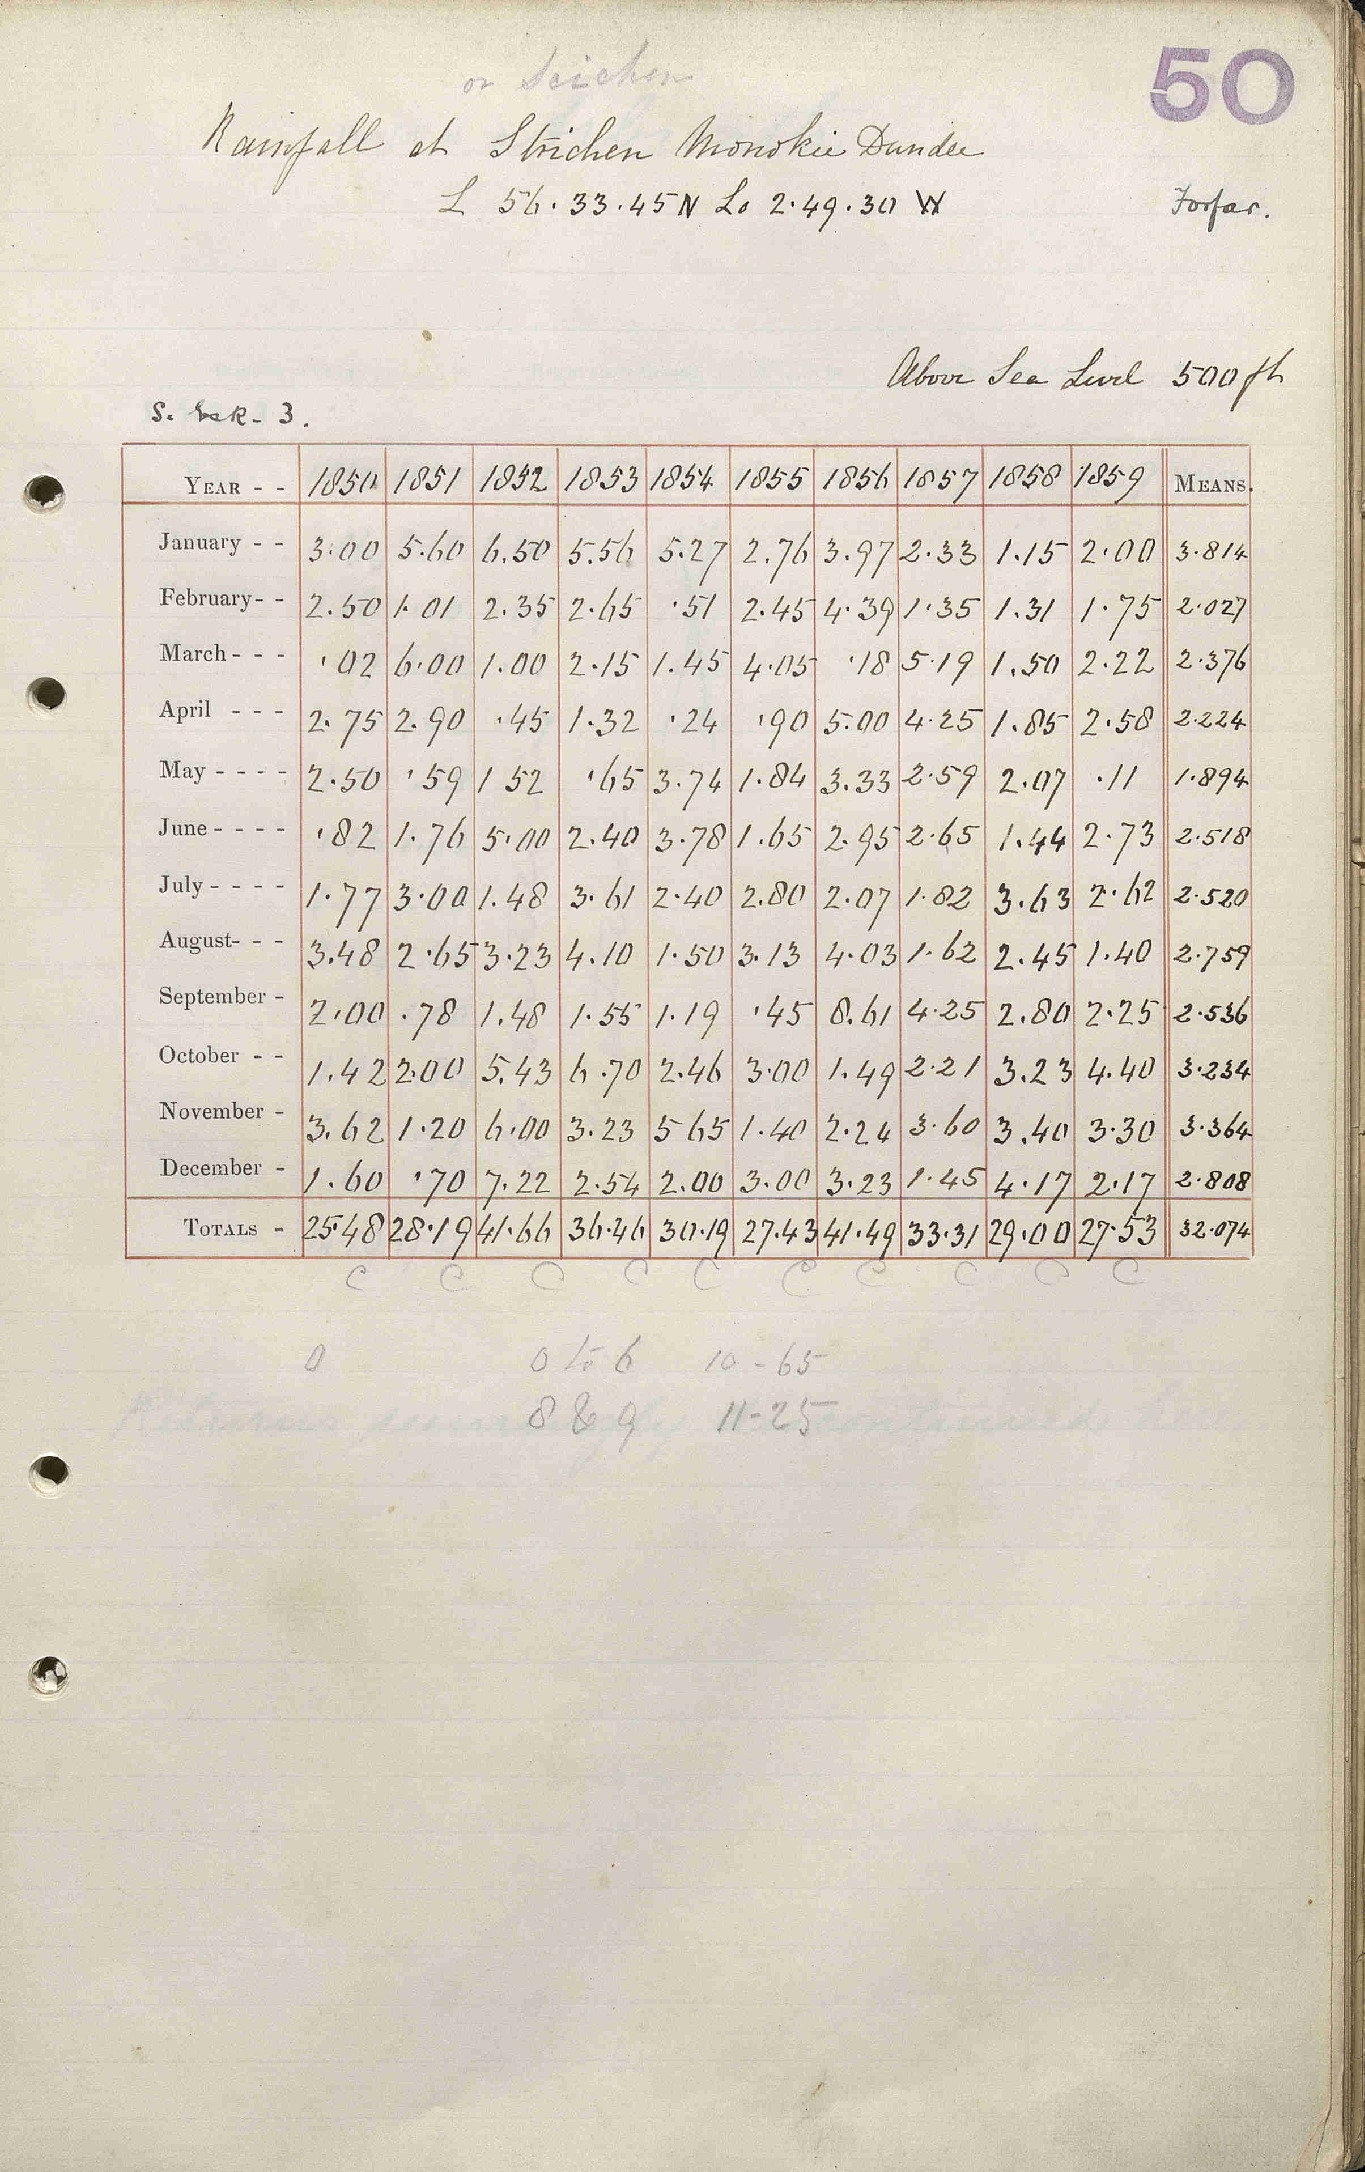 50
or Scichen
Rainfall at Strichen Monokie Dundee
L 56.33.45 N Lo 2.49.30 W
Forfar.
Above Sea Level 500 ft
S. Esk - 3.
YEAR - - 1850 1851 1852 1853 1854 1855 1856 1857 1858 1859 MEANS.
January - - 3.00 5.60 6.50 5.56 5.27 2.76 3.97 2.33 1.15 2.00 3.814
February - - 2.50 1.01 2.35 2.65 .51 2.45 4.39 1.35 1.31 1.75 2.027
March - - - .02 6.00 1.00 2.15 1.45 4.05 .18 5.19 1.50 2.22 2.376
April - - - 2.75 2.90 .45 1.32 .24 .90 5.00 4.25 1.85 2.58 2.224
May - - - - 2.50 .59 1 52 .65 3.74 1.84 3.33 2.59 2.07 .11 1.894
June - - - - .82 1.76 5.00 2.40 3.78 1.65 2.95 2.65 1.44 2.73 2.518
July - - - - 1.77 3.00 1.48 3.61 2.40 2.80 2.07 1.82 3.63 2.62 2.520
August - - - 3.48 2.65 3.23 4.10 1.50 3.13 4.03 1.62 2.45 1.40 2.759
September - 2.00 .78 1.48 1.55 1.19 .45 8.61 4.25 2.80 2.25 2.536
October - - 1.42 2.00 5.43 6.70 2.46 3.00 1.49 2.21 3.23 4.40 3.234
November - 3.62 1.20 6.00 3.23 5 65 1.40 2.24 3.60 3.40 3.30 3.364
December - 1.60 .70 7.22 2.54 2.00 3.00 3.23 1.45 4.17 2.17 2.808
TOTALS - 25.48 28.19 41.66 36.46 30.19 27.43 41.49 33.31 29.00 27.53 32.074
C C C C C C C C C C
0 0 to 6 10 - 65
8 & 9 11 - 25